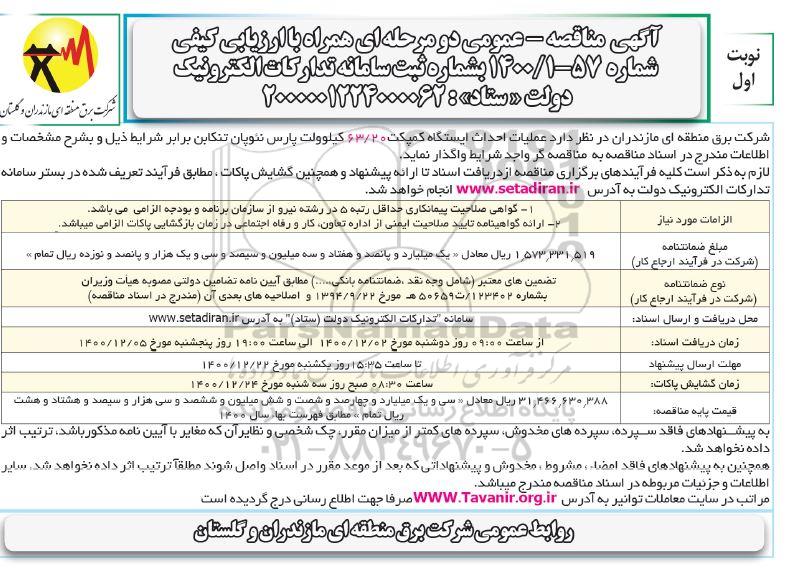 نوبت
اول
آگهی مناقصه – عمومی دو مرحله ای همراه با ارزیابی کیفی
شماره ۵۷-۱۴۰۰/۱ بشماره ثبت سامانه تدارکات الکترونیک
دولت «ستاد»: ۲۰۰۰۰۰۱۲۲۴۰۰۰۰۶۲
شرکت برق منطقه ای مازندران و گلستان
شرکت برق منطقه ای مازندران در نظر دارد عملیات احداث ایستگاه کمپکت ۶۳/۲۰ کیلوولت پارس نئوپان تنکابن برابر شرایط ذیل و بشرح مشخصات و
اطلاعات مندرج در اسناد مناقصه به مناقصه گر واجد شرایط واگذار نماید.
لازم به ذکر است کلیه فرآیندهای برگزاری مناقصه از دریافت اسناد تا ارائه پیشنهاد و همچنین گشایش پاکات ، مطابق فرآیند تعریف شده در بستر سامانه
تدارکات الکترونیک دولت به آدرس www.setadiran.ir انجام خواهد شد.
الزامات مورد نیاز
۱- گواهی صلاحیت پیمانکاری حداقل رتبه ۵ در رشته نیرو از سازمان برنامه و بودجه الزامی می باشد.
۲- ارائه گواهینامه تایید صلاحیت ایمنی از اداره تعاون، کار و رفاه اجتماعی در زمان بازگشایی پاکات الزامی میباشد.
مبلغ ضمانتنامه
(شرکت در فرآیند ارجاع کار)
۱,۵۷۳,۳۳۱,۵۱۹ ریال معادل « یک میلیارد و پانصد و هفتاد و سه میلیون و سیصد و سی و یک هزار و پانصد و نوزده ریال تمام »
نوع ضمانتنامه
(شرکت در فرآیند ارجاع کار)
تضمین های معتبر (شامل وجه نقد ،ضمانتنامه بانکی،....) مطابق آیین نامه تضامین دولتی مصوبه هیأت وزیران
بشماره ۱۲۳۴۰۲/ت۵۰۶۵۹ هـ مورخ ۱۳۹۴/۹/۲۲ و اصلاحیه های بعدی آن (مندرج در اسناد مناقصه)
محل دریافت و ارسال اسناد:
سامانه "تدارکات الکترونیک دولت (ستاد)" به آدرس www.setadiran.ir
زمان دریافت اسناد:
از ساعت ۰۹:۰۰ روز دوشنبه مورخ ۱۴۰۰/۱۲/۰۲ الی ساعت ۱۹:۰۰ روز پنجشنبه مورخ ۱۴۰۰/۱۲/۰۵
مهلت ارسال پیشنهاد
تا ساعت ۱۵:۳۵ روز یکشنبه مورخ ۱۴۰۰/۱۲/۲۲
زمان گشایش پاکات:
ساعت ۰۸:۳۰ صبح روز سه شنبه مورخ ۱۴۰۰/۱۲/۲۴
قیمت پایه مناقصه:
۳۱,۴۶۶,۶۳۰,۳۸۸ ریال معادل « سی و یک میلیارد و چهارصد و شصت و شش میلیون و ششصد و سی هزار و سیصد و هشتاد و هشت
ریال تمام » مطابق فهرست بهاء سال ۱۴۰۰
به پیشنهادهای فاقد سپرده، سپرده های مخدوش، سپرده های کمتر از میزان مقرر، چک شخصی و نظایر آن که مغایر با آیین نامه مذکور باشد، ترتیب اثر
داده نخواهد شد.
همچنین به پیشنهادهای فاقد امضاء ، مشروط ، مخدوش و پیشنهاداتی که بعد از موعد مقرر در اسناد واصل شوند مطلقاً ترتیب اثر داده نخواهد شد. سایر
اطلاعات و جزئیات مربوطه در اسناد مناقصه مندرج میباشد.
مراتب در سایت معاملات توانیر به آدرس WWW.Tavanir.org.ir صرفا جهت اطلاع رسانی درج گردیده است
روابط عمومی شرکت برق منطقه ای مازندران و گلستان
ParsNamadData
۰۲۱-۸۸۳۴۹۶۷۰-۵